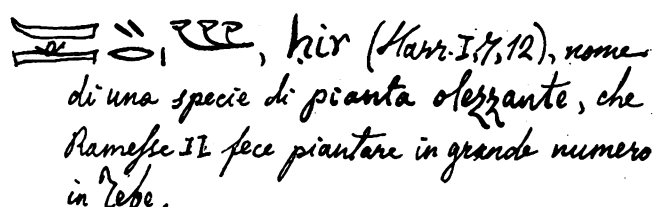 ḥir (Harr. I, 7, 12), nome
di una specie di pianta olezzante, che
Ramesse II fece piantare in grande numero
in Tebe.